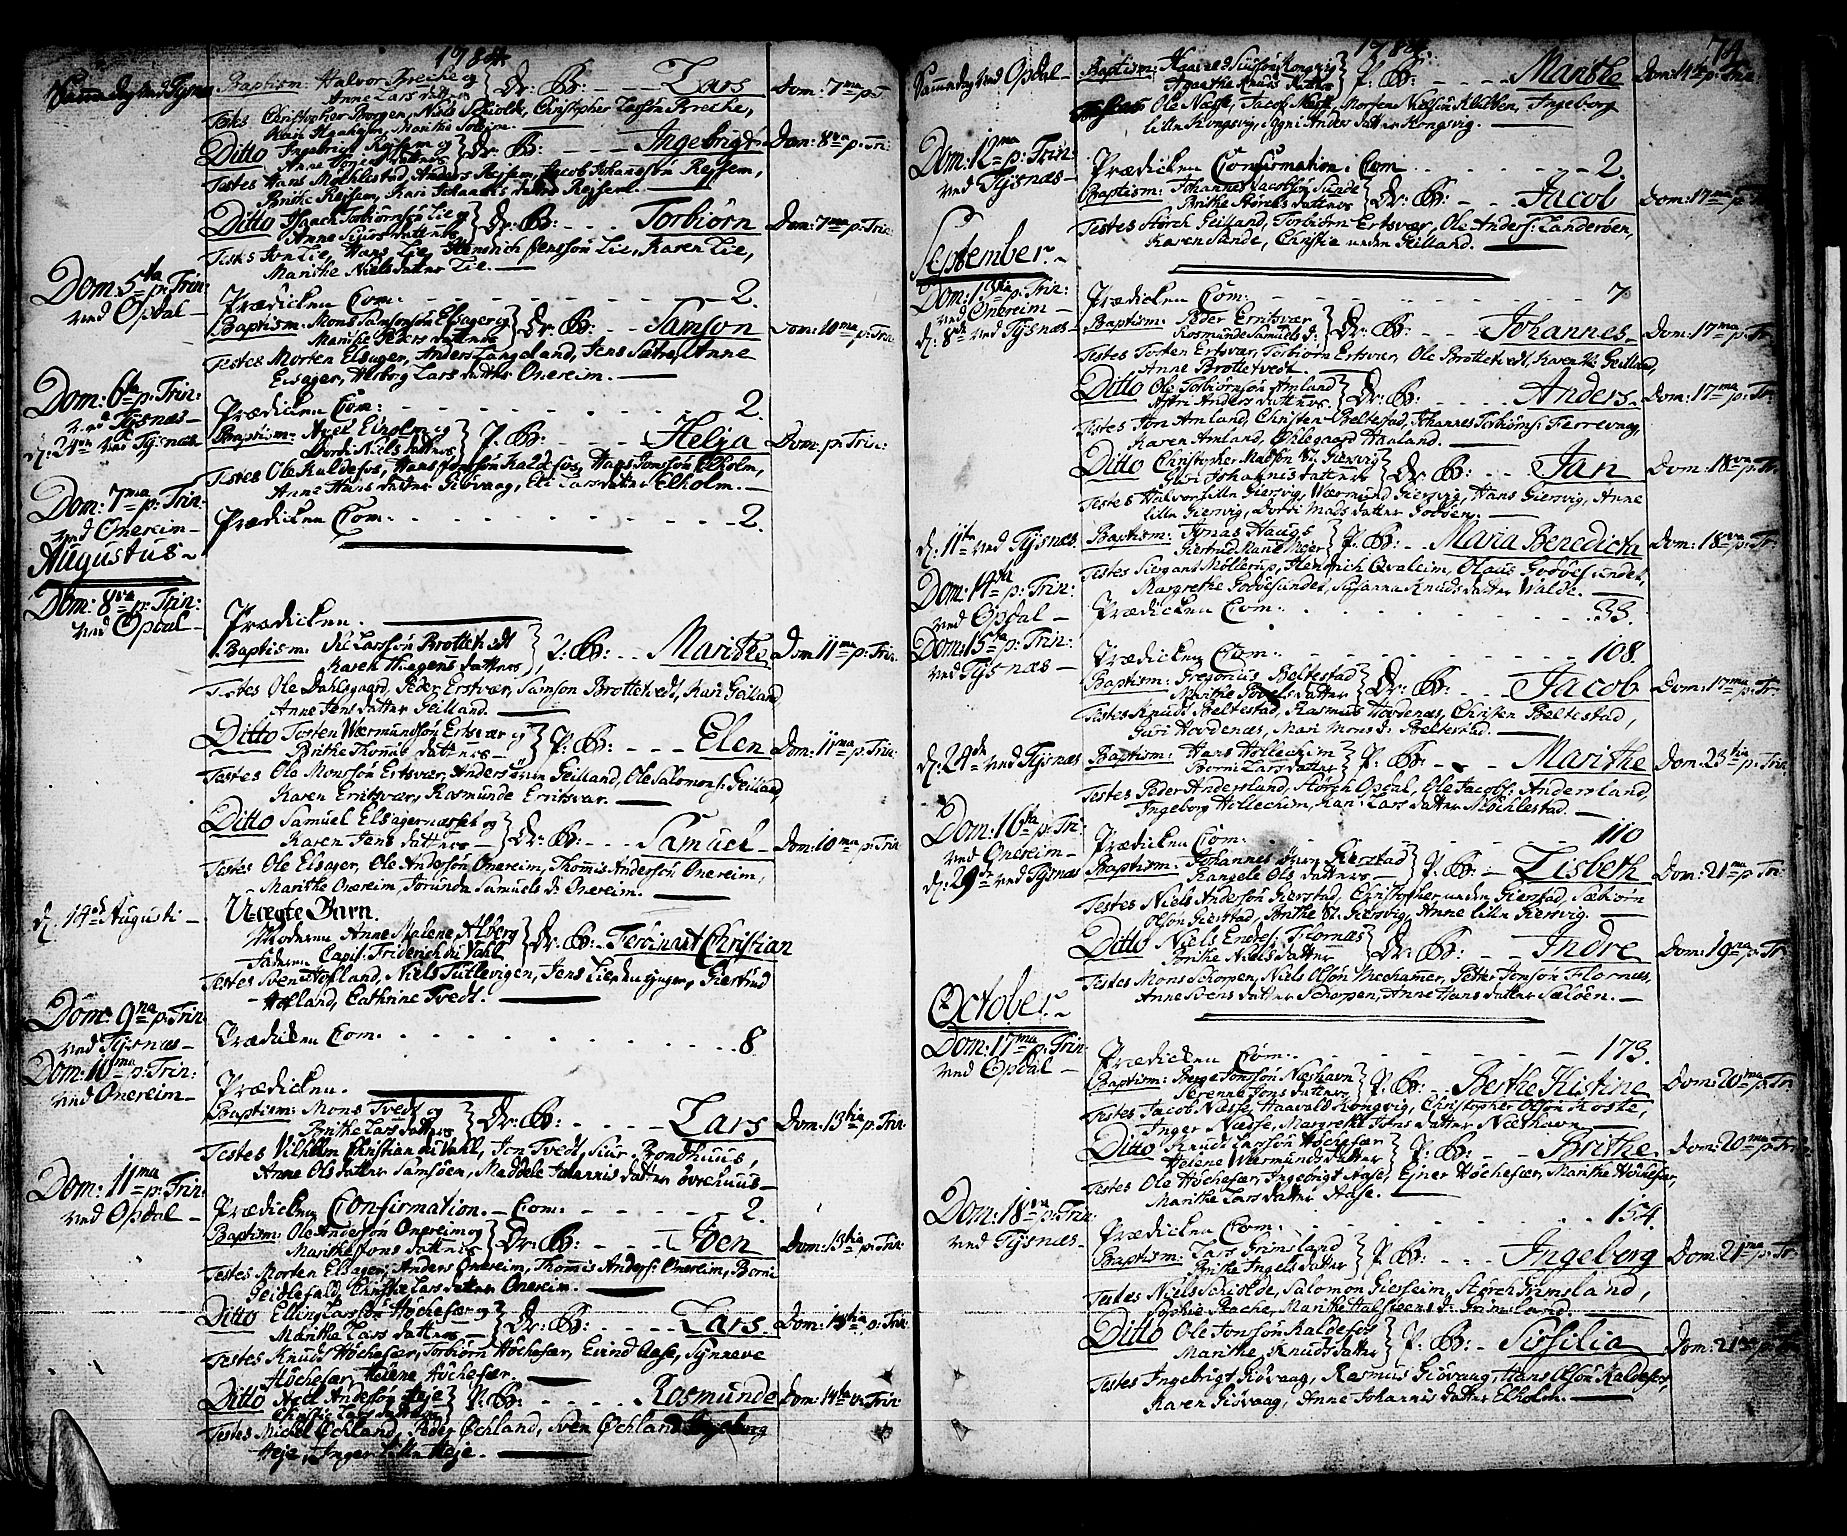 1784.
Samme dag ved Tysnæs
Baptism: Halvor Breche og
Anne Lars datter
Dr: B: Lars
Dom: 7ma p: T
Testes Christopher Borgen, Niels Skiolde, Christopher Larsøn Breche,
Marithe Soleim.
Ditto Ingebrigt Reisem og
Dr: B: Ingebrigt
Dom: 8va p: Tri:
Testes Hans Møchlestad, Anders Reisem, Jacob Johansøn Reisem,
Brithe Reisem, Kari Johannis datter Reisem.
Ditto Isaach Torbiørnsøn Lie og
Anne Siurs datter
Dr: B: Torbiørn
Dom: 7ma p: Trin:
Testes Jon Lie, Hans Lie, Heinrich Jenssøn Lie, Karen Lie,
Marithe Niels datter Lie.
Dom: 5ta p: Trin:
ved Opdal
Prædicken Com: 2.
Baptism: Mons Samsonsøn Elsager og
Marithe Peders datter
Dr: B: Samson
Dom: 10ma p: Trin:
Testes Morten Elsager, Anders Langeland, Jens Sætre, Anne
Elsager, Herborg Lars datter Onereim.
Dom: 6ta p: Trin:
ved Tysnæs
Prædicken Com: 2.
d: 21de ved Tysnæs
Baptism: Axel Elholm og
Dordi Niels datter
P. B: Helja
Dom: p: Trin:
Testes Ole Kaldefos, Hans Jonssøn Kaldefos, Hans Jonssøn Elholm,
Anne Hans datter Giøvaag, Eli Lars datter Elholm.
Dom: 7ma p: Trin:
ved Onereim
Prædicken Com: 2.
Augustus
Dom: 8va p: Trin:
ved Opdal
Prædicken.
Baptism: Nil Larssøn Brottetvedt
Karen Thagens datter
P: B: Marithe
Dom 11ma p: Trin:
Testes Ole Dahlsgaard, Peder Ertsvær, Samson Brottetvedt, Kari Geilland
Anne Jens datter Geilland.
Ditto Torsten Wærmundsøn Ertsvær og
Brithe Thomas datter
P: B: Elen
Dom: 11ma p: Trin:
Testes Ole Monssøn Ertsvær, Anders øvre Geilland, Ole Salomons: Geilland,
Karen Erritsvær, Rosmunde Erritsvær.
Ditto Samuel Elsagernæsset og
Karen Jens datter
Dr: B: Samuel
Dom: 10ma p: Trin
Testes Ole Elsager, Ole Anderssøn Onereim, Thomis Anderssøn Onereim,
Marithe Onereim, Jorunda Samuels d: Onereim.
d: 14de Augusti
Uægte Barn.
Moderen Anne Malene Alberg
Faderen Capit: Friderich du Vahl
Dr: B: Ferdinant Christian
Testes Sven Hofland, Niels Tufteviigen, Jens Lie, Giertrud
Hofland, Cathrine Tvedt.
Dom: 9na p: Trin:
ved Tysnæs
Prædicken Com: 8
Dom: 10ma p: Trin:
ved Onereim
Prædicken.
Baptism: Mons Tvedt og
Brithe Lars datter
Dr: B: Lars
Dom: 13tia p: Trin:
Testes Vilhelm Christian du Vahl, Jon Tvedt, Siur Bondhuus,
Anne Ols datter Samsøen, Maddele Johannis datter Øvrehuus
Dom: 11ma p: Trin:
ved Opdal
Prædicken Confirmation. Com: 2.
Baptism: Ole Anderssøn Onereim og
Marithe Jons datter
Dr: B: Joen
Dom: 13tia p: Trin:
Testes Morten Elsager, Anders Onereim, Thomis Anders: Onereim, Borni
Geidlefald, Christie Lars datter Onereim.
Ditto Elling Larssøn Høchefær og
Marithe Lars datter
Dr: B: Lars.
Dom: 13tia p: Trin:
Testes Knud Høchefær, Torbiørn Høchefær, Eivind Aase, Synneve
Høchefær, Helene Høchefær.
Ditto Axel Anderssøn Heje
Christi Lars datter
P. B: Rosmunde
Dom: 14ta p: Trin:
Testes Michel Øchland, Peder Øchland, Sven Øchland Ingeborg
Heje, Inger Lilln Heje.
1784.
74.
Samme dag ved Opdal
Baptism: Haavald Siursøn Kongsvig
Agaathe Knuds datter
P. B: Marithe
Dom: 14ta p: Trin
Testes Ole Næsse, Jacob Næsse, Morten Nielsøn Ingeborg
Lilln Kongsvig, Agni Anders datter Kongsvig.
Dom: 12ma p: Trin:
ved Tysnæs
Prædicken Confirmation Com 2.
Baptism: Johannes Jacobsøn Sunde
Brithe Størchs datter
Dr: B: Jacob
Dom: 17ma p: T
Testes Størch Geilland, Torbiørn Ertsvær, Ole Anders: Landerøen,
Karen Sunde, Christie neden Geilland.
September
Dom: 13tia p: Trin:
ved Onereim
Prædicken Com: 7
d: 8de ved Tysnæs
Baptism: Peder Erritsvær
Rosmunde Samuels d:
Dr: B: Johannes
Dom: 17ma p: Tr:
Testes Torsten Ertsvær, Torbiørn Ertsvær, Ole Brottetvedt, Karen Geilland,
Anne Brottetvedt.
Ditto Ole Torbiørnsøn Amland
Astri Anders datter
Dr: B: Anders
Dom: 17ma p: Tr:
Testes Jon Amland, Christen Beltestad, Johannes Torbiørns: Fierrevaag,
Karen Amland, Øhlegaard Hanland.
Ditto Christopher Madssøn Giersvig
Guri Johannis datter
Dr: B: Jan
Dom: 18va p: Tr:
Testes Halvor Lille Giersvig, Wærmund Giersvig, Hans Giersvig, Anne
Lilln Giersvig, Dordi Mads datter Godøen.
d: 11te ved Tysnæs
Baptism: Jonas Haugs
Giertrud Marie Meyer
P. B: Maria Benedicta
Dom: 18va p: Tr:
Testes Siergant Møllerup, Hendrich Qvaleim, Olaus Godøesundet,
Margrethe Godøesundet, Susanna Knuds datter Valde.
Dom: 14ta p: Trin:
ved Opdal
Prædicken Com: 33.
Dom: 15ta p: Trin:
ved Tysnæs
Prædicken Com: 108.
Baptism: Gregorius Beltestad
Marithe Povels datter
Dr: B: Jacob
Dom: 17ma p: Tr:
Testes Knud Beltestad, Rasmus Hovdenæs, Christen Beltestad,
Guri Hovdenæs, Mari Mons d: Beltestad.
d: 24de ved Tysnæs
Baptism: Hans Hollechim
Borni Lars datter
P. B: Marithe
Dom: 23tia p: Trin
Testes Peder Andersland, Størch Opdal, Ole Jacobs: Andersland,
Ingeborg Hollechim, Kari Lars datter Møchlestad.
Dom: 16ta p: Tri:
ved Onereim
Prædicken Com: 110
d: 29de ved Tysnæs
Baptism: Johannes øvre Gierstad
Rangele Ols datter
P. B: Lisbeth
Dom: 21ma p: Tri:
Testes Niels Anderssøn Gierstad, Christopher neden Gierstad, Sæbiørn
Olsøn Gierstad, Brithe St. Giersvig, Anne Lilln Giersvig.
Ditto Niels Endres: Flornæs
Brithe Niels datter
Dr: B: Indre
Dom: 19na p: Tr
Testes Mons Schorpen, Niels Olsøn Mechammer, Petter Jonsøn Flornæs,
Anne Svens datter Schorpen, Anne Hans datter Sæløen.
October
Dom: 17ma p: Trin:
ved Opdal
Prædicken Com: 173.
Baptism: Berge Jonssøn Næshavn
Serenne Jons datter
P: B: Berthe Kistine
Dom: 20ma p: Tri
Testes Jacob Næsse, Haavald Kongvig, Christopher Olsøn Koste,
Inger Næsse, Margrethe Jons datter Næshavn.
Ditto Knud Larssøn Høchefær
Helene Wærmunds datter
P: B: Brithe.
Dom: 20ma p: Tri:
Testes Ole Høchefær, Ingebrigt Aase, Ejner Høchefær, Marithe Høchefær,
Marithe Lars datter Aase.
Dom: 18va p: Trin:
ved Tysnæs
Prædicken Com: 154.
Baptism: Lars Grimsland
Brithe Ingels datter
P: B: Ingeborg
Dom: 21ma p: Tr:
Testes Niels Schiolde, Salomon Giesseim, Størch Grimsland,
Sophie Brache, Marithe Halsteens d: Grimsland.
Ditto Ole Jonssøn Kaldefos
Marithe Knuds datter
P. B: Sissilia
Dom: 21ma p: Tri
Testes Ingebrigt Giøvaag, Rasmus Giøvaag, Hans Olsøn Kaldefos,
Karen Giøvaag, Anne Johannis datter Elholm.